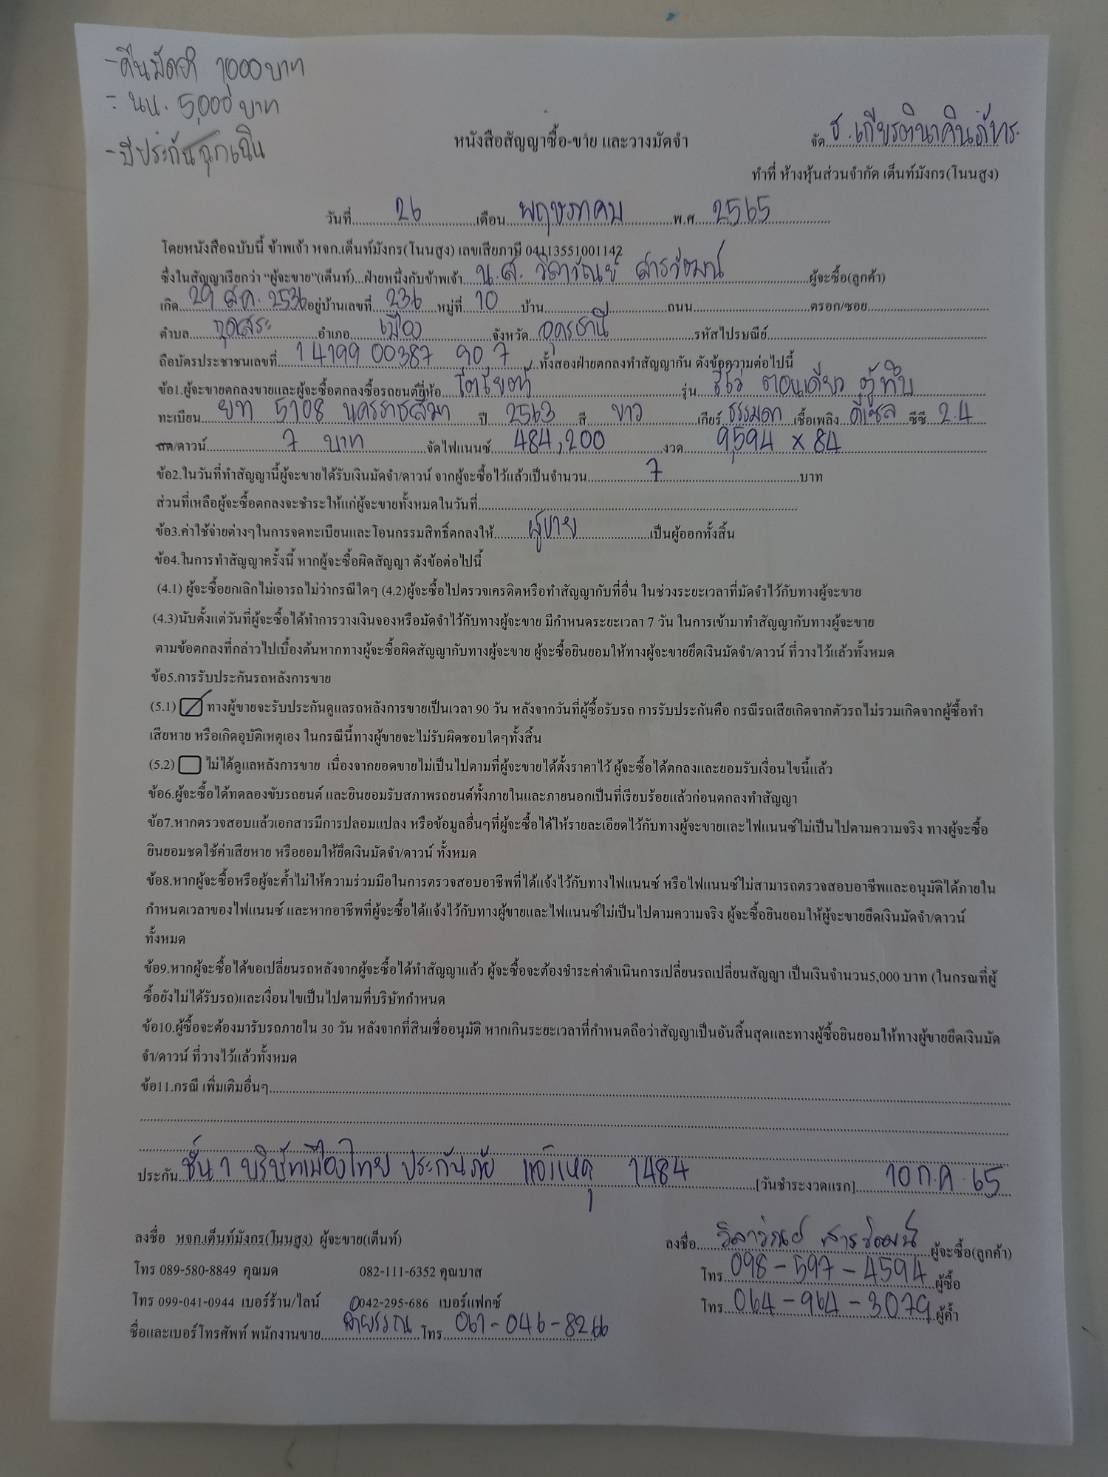 -คืนมัดจำ 1000 บาท
- นน. 5,000 บาท
-มีประกันฉุกเฉิน
หนังสือสัญญาซื้อ-ขาย และวางมัดจำ
จัด ธ.เกียรตินาคินภัทร
ทำที่ ห้างหุ้นส่วนจำกัด เต็นท์มังกร(โนนสูง)
วันที่ 26 เดือน พฤษภาคม พ.ศ. 2565
โดยหนังสือฉบับนี้ ข้าพเจ้า หจก.เต็นท์มังกร(โนนสูง) เลขเสียภาษี 04113551001142
ซึ่งในสัญญาเรียกว่า "ผู้จะขาย"(เต็นท์)...ฝ่ายหนึ่งกับข้าพเจ้า น.ส. วิลาวัณย์ สารวัฒน์ ผู้จะซื้อ(ลูกค้า)
เกิด 29 ส.ค. 2536 อยู่บ้านเลขที่ 236 หมู่ที่ 10 บ้าน ถนน ตรอก/ซอย
ตำบล กุดสระ อำเภอ เมือง จังหวัด อุดรธานี รหัสไปรษณีย์
ถือบัตรประชาชนเลขที่ 1 4199 00387 90 7 ทั้งสองฝ่ายตกลงทำสัญญากัน ดังข้อความต่อไปนี้
ข้อ1.ผู้จะขายตกลงขายและผู้จะซื้อตกลงซื้อรถยนต์ยี่ห้อ โตโยต้า รุ่น รีโว่ ตอนเดียว ตู้ทึบ
ทะเบียน ยท 5108 นครราชสีมา ปี 2563 สี ขาว เกียร์ ธรรมดา เชื้อเพลิง ดีเซล ซีซี 2.4
สด/ดาวน์ 7 บาท จัดไฟแนนซ์ 484,200 งวด 9,594 x 84
ข้อ2.ในวันที่ทำสัญญานี้ผู้จะขายได้รับเงินมัดจำ/ดาวน์ จากผู้จะซื้อไว้แล้วเป็นจำนวน 7 บาท
ส่วนที่เหลือผู้จะซื้อตกลงจะชำระให้แก่ผู้จะขายทั้งหมดในวันที่
ข้อ3.ค่าใช้จ่ายต่างๆในการจดทะเบียนและโอนกรรมสิทธิ์ตกลงให้ ผู้ขาย เป็นผู้ออกทั้งสิ้น
ข้อ4.ในการทำสัญญาครั้งนี้ หากผู้จะซื้อผิดสัญญา ดังข้อต่อไปนี้
(4.1) ผู้จะซื้อยกเลิกไม่เอารถไม่ว่ากรณีใดๆ (4.2)ผู้จะซื้อไปตรวจเครดิตหรือทำสัญญากับที่อื่น ในช่วงระยะเวลาที่มัดจำไว้กับทางผู้จะขาย
(4.3)นับตั้งแต่วันที่ผู้จะซื้อได้ทำการวางเงินจองหรือมัดจำไว้กับทางผู้จะขาย มีกำหนดระยะเวลา 7 วัน ในการเข้ามาทำสัญญากับทางผู้จะขาย
ตามข้อตกลงที่กล่าวไปเบื้องต้นหากทางผู้จะซื้อผิดสัญญากับทางผู้จะขาย ผู้จะซื้อยินยอมให้ทางผู้จะขายยึดเงินมัดจำ/ดาวน์ ที่วางไว้แล้วทั้งหมด
ข้อ5.การรับประกันรถหลังการขาย
(5.1) ทางผู้ขายจะรับประกันดูแลรถหลังการขายเป็นเวลา 90 วัน หลังจากวันที่ผู้ซื้อรับรถ การรับประกันคือ กรณีรถเสียเกิดจากตัวรถไม่รวมเกิดจากผู้ซื้อทำ
เสียหาย หรือเกิดอุบัติเหตุเอง ในกรณีนี้ทางผู้ขายจะไม่รับผิดชอบใดๆทั้งสิ้น
(5.2) ไม่ได้ดูแลหลังการขาย เนื่องจากยอดขายไม่เป็นไปตามที่ผู้จะขายได้ตั้งราคาไว้ ผู้จะซื้อได้ตกลงและยอมรับเงื่อนไขนี้แล้ว
ข้อ6.ผู้จะซื้อได้ทดลองขับรถยนต์ และยินยอมรับสภาพรถยนต์ทั้งภายในและภายนอกเป็นที่เรียบร้อยแล้วก่อนตกลงทำสัญญา
ข้อ7.หากตรวจสอบแล้วเอกสารมีการปลอมแปลง หรือข้อมูลอื่นๆที่ผู้จะซื้อได้ให้รายละเอียดไว้กับทางผู้จะขายและไฟแนนซ์ไม่เป็นไปตามความจริง ทางผู้จะซื้อ
ยินยอมชดใช้ค่าเสียหาย หรือยอมให้ยึดเงินมัดจำ/ดาวน์ ทั้งหมด
ข้อ8.หากผู้จะซื้อหรือผู้จะค้ำไม่ให้ความร่วมมือในการตรวจสอบอาชีพที่ได้แจ้งไว้กับทางไฟแนนซ์ หรือไฟแนนซ์ไม่สามารถตรวจสอบอาชีพและอนุมัติได้ภายใน
กำหนดเวลาของไฟแนนซ์ และหากอาชีพที่ผู้จะซื้อได้แจ้งไว้กับทางผู้ขายและไฟแนนซ์ไม่เป็นไปตามความจริง ผู้จะซื้อยินยอมให้ผู้จะขายยึดเงินมัดจำ/ดาวน์
ทั้งหมด
ข้อ9.หากผู้จะซื้อได้ขอเปลี่ยนรถหลังจากผู้จะซื้อได้ทำสัญญาแล้ว ผู้จะซื้อจะต้องชำระค่าดำเนินการเปลี่ยนรถเปลี่ยนสัญญา เป็นเงินจำนวน5,000 บาท (ในกรณีที่ผู้
ซื้อยังไม่ได้รับรถ)และเงื่อนไขเป็นไปตามที่บริษัทกำหนด
ข้อ10.ผู้ซื้อจะต้องมารับรถภายใน 30 วัน หลังจากที่สินเชื่ออนุมัติ หากเกินระยะเวลาที่กำหนดถือว่าสัญญาเป็นอันสิ้นสุดและทางผู้ซื้อยินยอมให้ทางผู้ขายยึดเงินมัด
จำ/ดาวน์ ที่วางไว้แล้วทั้งหมด
ข้อ11.กรณี เพิ่มเติมอื่นๆ
ประกัน ชั้น 1 บริษัทเมืองไทย ประกันภัย แจ้งเหตุ 1484 [วันชำระงวดแรก] 10 ก.ค. 65
ลงชื่อ หจก.เต็นท์มังกร(โนนสูง) ผู้จะขาย(เต็นท์)
ลงชื่อ วิลาวัณย์ สารวัฒน์ ผู้จะซื้อ(ลูกค้า)
โทร 089-580-8849 คุณมด 082-111-6352 คุณบาส
โทร 098-597-4594 ผู้ซื้อ
โทร 099-041-0944 เบอร์ร้าน/ไลน์ 0042-295-686 เบอร์แฟกซ์
โทร 064-964-3079 ผู้ค้ำ
ชื่อและเบอร์โทรศัพท์ พนักงานขาย โทร 061-046-8266